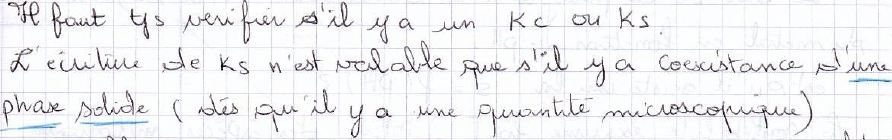 Il faut tjs vérifier s'il y a un Kc ou Ks.
L'écriture de Ks n'est valable que s'il y a coexistance d'une
phase solide (dès qu'il y a une quantité microscopique)